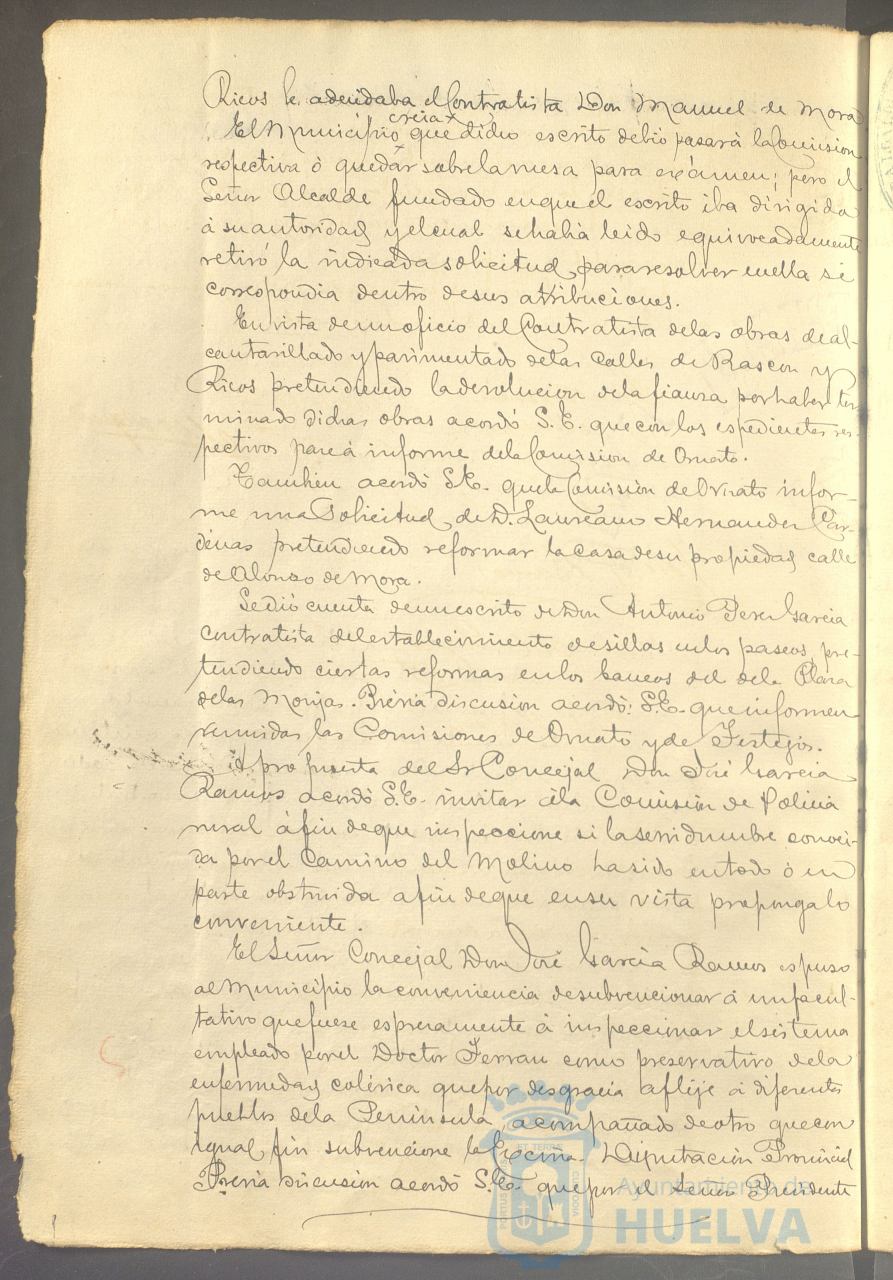 Ricos le adeudaba el Contratista Don Manuel de Mora
creia
El Municipio que dicho escrito debió pasar á la Comision
respectiva ó quedar sobre la mesa para exámen; pero el
Señor Alcalde fundado en que el escrito iba dirigido
á su autoridad y el cual se habia leido equivocadamente
retiró la indicada solicitud para resolver en ella si
correspondia dentro de sus atribuciones.
En vista de un oficio del Contratista de las obras de al-
cantarillado y pavimentado de las Calles de Rascon y
Ricos pretendiendo la devolucion de la fianza por haber ter
minado dichas obras acordó S.E. que con los espedientes res-
pectivos pase á informe de la Comision de Ornato.
Tambien acordó S.E. que la Comision de Ornato infor-
me una Solicitud de D. Laureano Hernandez Car-
denas pretendiendo reformar la casa de su propiedad calle
de Alonso de Mora.
Se dió cuenta de un escrito de Don Antonio Perez Garcia
contratista del establecimiento de sillas en los paseos, pre-
tendiendo ciertas reformas en los bancos del de la Plaza
de las Monjas. Prévia discusion acordó S.E. que informen
reunidas las Comisiones de Ornato y de Festejos.
A propuesta del Sr Concejal Don José Garcia
Ramos acordó S.E. invitar á la Comision de Policia
rural á fin de que inspeccione si la servidumbre conoci-
da por el Camino del Molino ha sido en todo ó en
parte obstruida a fin de que en su vista proponga lo
conveniente.
El Señor Concejal Don José Garcia Ramos espuso
al Municipio la conveniencia de subvencionar á un facul-
tativo que fuese espresamente á inspeccionar el sistema
empleado por el Doctor Ferran como preservativo de la
enfermedad colérica que por desgracia aflije á diferentes
pueblos de la Peninsula, acompañado de otro que con
igual fin subvencione la Excma. Diputacion Provincial
Prévia discusion acordó S.E. que por el Señor Presidente
Ayuntamiento de
HUELVA